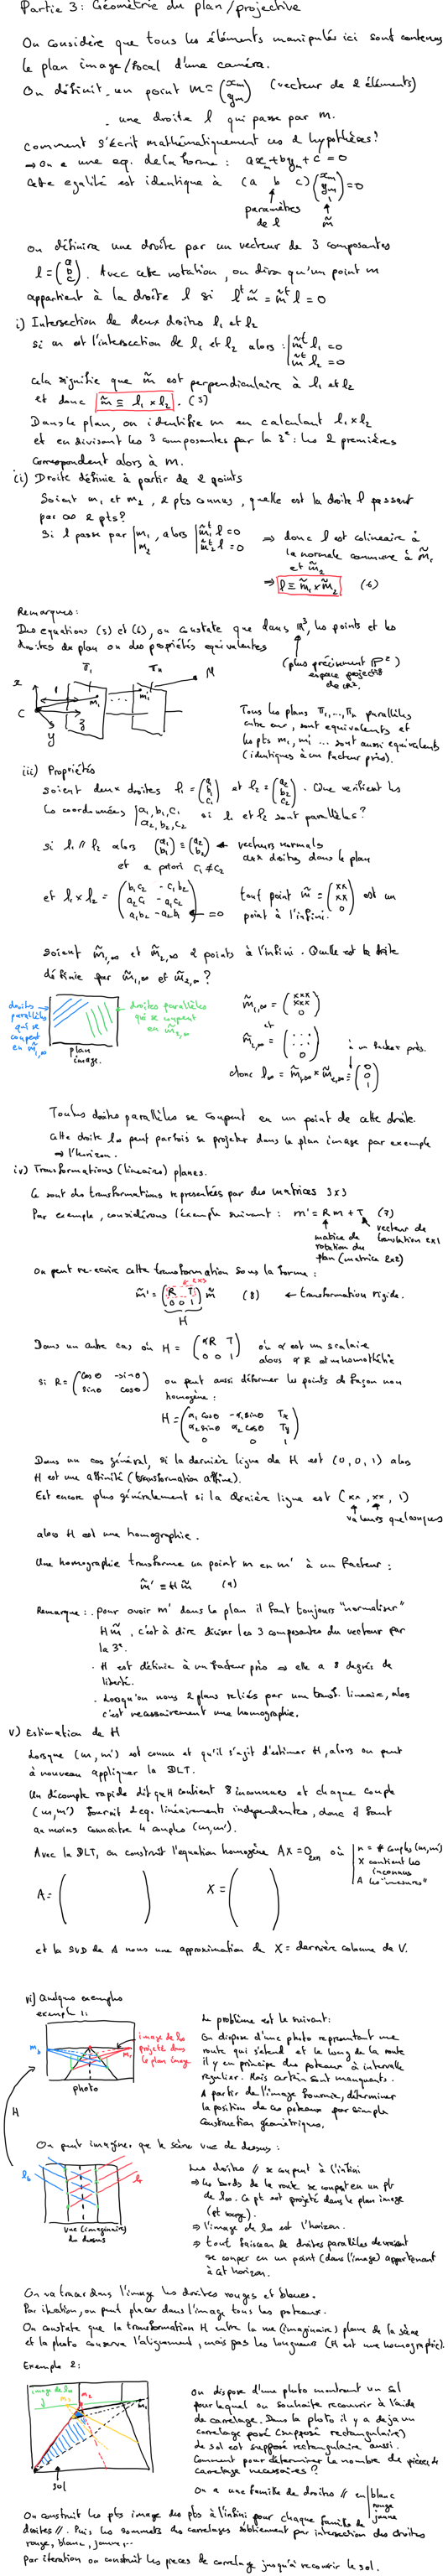 Partie 3 : Géométrie du plan/projective
On considère que tous les éléments manipulés ici sont contenus
le plan image/focal d'une caméra.
On définit . un point m = (xm ym) (vecteur de 2 éléments)
. une droite l qui passe par m.
comment s'écrit mathématiquement ces 2 hypothèses?
⇒ on a une eq. de la forme : axm + bym + c = 0
cette egalité est identique à (a b c) (xm ym 1) = 0
paramètres
de l
m̃
on définira une droite par un vecteur de 3 composantes
l = (a b c). Avec cette notation, on dira qu'un point m
appartient à la droite l si lᵗ m̃ = m̃ᵗ l = 0
i) Intersection de deux droites l₁ et l₂
si m est l'intersection de l₁ et l₂ alors : | m̃ᵗ l₁ = 0
m̃ᵗ l₂ = 0
cela signifie que m̃ est perpendiculaire à l₁ et l₂
et donc m̃ ≡ l₁ × l₂ . (5)
Dans le plan, on identifie m en calculant l₁ × l₂
et en divisant les 3 composantes par la 3ᵉ : les 2 premières
correspondent alors à m.
ii) Droite définie à partir de 2 points
Soient m₁ et m₂, 2 pts connus, quelle est la droite l passant
par ces 2 pts?
Si l passe par | m₁ m₂, alors | m̃₁ᵗ l = 0 m̃₂ᵗ l = 0 ⇒ donc l est colineaire à
la normale commune à m̃₁
et m̃₂
⇒ l ≡ m̃₁ × m̃₂ (6)
Remarques :
Des equations (5) et (6), on constate que dans ℝ³, les points et les
droites du plan on des propriétés equivalentes
(plus précisement ℙ²)
espace projectif
de ℝ².
π₁ πn M
x 1 m₁ ... mi
C z
y
Tous les plans π₁,...,πn parallèles
entre eux, sont equivalents et
les pts m₁, mi ... sont aussi equivalents
(identiques à un facteur près).
iii) Propriétés
soient deux droites l₁ = (a₁ b₁ c₁) et l₂ = (a₂ b₂ c₂). Que verifient les
les coordonnées | a₁, b₁, c₁ a₂, b₂, c₂ si l₁ et l₂ sont parallèles?
si l₁ // l₂ alors (a₁ b₁) ≡ (a₂ b₂) ← vecteurs normals
aux droites dans le plan
et a priori c₁ ≠ c₂
et l₁ × l₂ = (b₁c₂ - c₁b₂ a₂c₁ - a₁c₂ a₁b₂ - a₂b₁) ← = 0 tout point m̃ = (xx xx 0) est un
point à l'infini.
soient m̃₁,∞ et m̃₂,∞ 2 points à l'infini. Quelle est la droite
définie par m̃₁,∞ et m̃₂,∞ ?
droites
parallèles
qui se
coupent
en m̃₁,∞
droites parallèles
qui se coupent
en m̃₂,∞
plan
image.
m̃₁,∞ = (xxx xxx 0)
et
m̃₂,∞ = (... ... 0)
à un facteur près.
donc l∞ = m̃₁,∞ × m̃₂,∞ ≡ (0 0 1)
Toutes droites parallèles se coupent en un point de cette droite.
Cette droite l∞ peut parfois se projeter dans le plan image par exemple
⇒ l'horizon.
iv) Transformations (lineaires) planes.
Ce sont des transformations representées par des matrices 3x3
Par exemple, considérons l'exemple suivant : m' = R m + T (7)
matrice de
rotation du
plan (matrice 2x2)
vecteur de
translation 2x1
on peut re-ecrire cette transformation sous la forme :
2x3
m̃' = (R T 0 0 1) m̃ (8) ← transformation rigide.
H
Dans un autre cas où H = (αR T 0 0 1) où α est un scalaire
alors αR est une homothétie
si R = (cosθ -sinθ sinθ cosθ) on peut aussi déformer les points de façon non
homogène :
H = (α₁cosθ -α₁sinθ Tx α₂sinθ α₂cosθ Ty 0 0 1)
Dans un cas général, si la dernière ligne de H est (0, 0, 1) alors
H est une affinité (transformation affine).
Est encore plus généralement si la dernière ligne est (xx, xx, 1)
valeurs quelconques
alors H est une homographie.
Une homographie transforme un point m en m' à un facteur :
m̃' ≡ H m̃ (9)
Remarque : . pour avoir m' dans le plan il faut toujours "normaliser"
H m̃, c'est à dire diviser les 3 composantes du vecteur par
la 3ᵉ.
. H est définie à un facteur près ⇒ elle a 8 degrés de
liberté.
. Lorsqu'on nous 2 plans reliés par une transf. lineaire, alors
c'est necessairement une homographie.
v) Estimation de H
Lorsque (m, m') est connu et qu'il s'agit d'estimer H, alors on peut
à nouveau appliquer la DLT.
Un décompte rapide dit que H contient 8 inconnues et chaque couple
(m, m') fournit 2 eq. linéairement independantes, donc il faut
au moins connaitre 4 couples (m, m').
Avec la DLT, on construit l'equation homogène AX = 0₂ₓₙ où | n = # couples (m, m')
X contient les
inconnues
A les "mesures"
A = ( ) X = ( )
et la SVD de A nous une approximation de X = dernière colonne de V.
vi) Quelques exemples
exemple 1:
m₂ m₁
image de l∞
projetée dans
le plan image
photo
H
Le problème est le suivant :
On dispose d'une photo representant une
route qui s'etend et le long de la route
il y en principe des poteaux à intervalle
regulier. Mais certain sont manquants.
A partir de l'image fournie, déterminer
la position de ces poteaux par simple
construction géometrique.
On peut imaginer que la scène vue de dessus :
vue (imaginaire)
de dessus
Les droites // se coupent à l'infini
⇒ les bords de la route se coupent en un pt
de l∞. Ce pt est projeté dans le plan image
(pt rouge).
⇒ l'image de l∞ est l'horizon.
⇒ tout faisceau de droites parallèles devraient
se couper en un point (dans l'image) appartenant
à cet horizon.
On va tracer dans l'image les droites rouges et bleues.
Par itération, on peut placer dans l'image tous les poteaux.
On constate que la transformation H entre la vue (imaginaire) plane de la scène
et la photo conserve l'alignement, mais pas les longueurs (H est une homographie).
Exemple 2 :
image de l∞
m₂
sol
on dispose d'une photo montrant un sol
pour lequel on souhaite recouvrir à l'aide
de carrelage. Dans la photo il y a deja un
carrelage posé (supposé rectangulaire)
le sol est supposé rectangulaire aussi.
Comment pour déterminer le nombre de pièces de
carrelage necessaires ?
On a une famille de droites // en | blanc
rouge
jaune
On construit les pts image des pts à l'infini pour chaque famille de
droites //. Puis les sommets des carrelages s'obtiennent par intersection des droites
rouge, blanc, jaune,...
Par iteration on construit les pieces de carrelage jusqu'à recouvrir le sol.